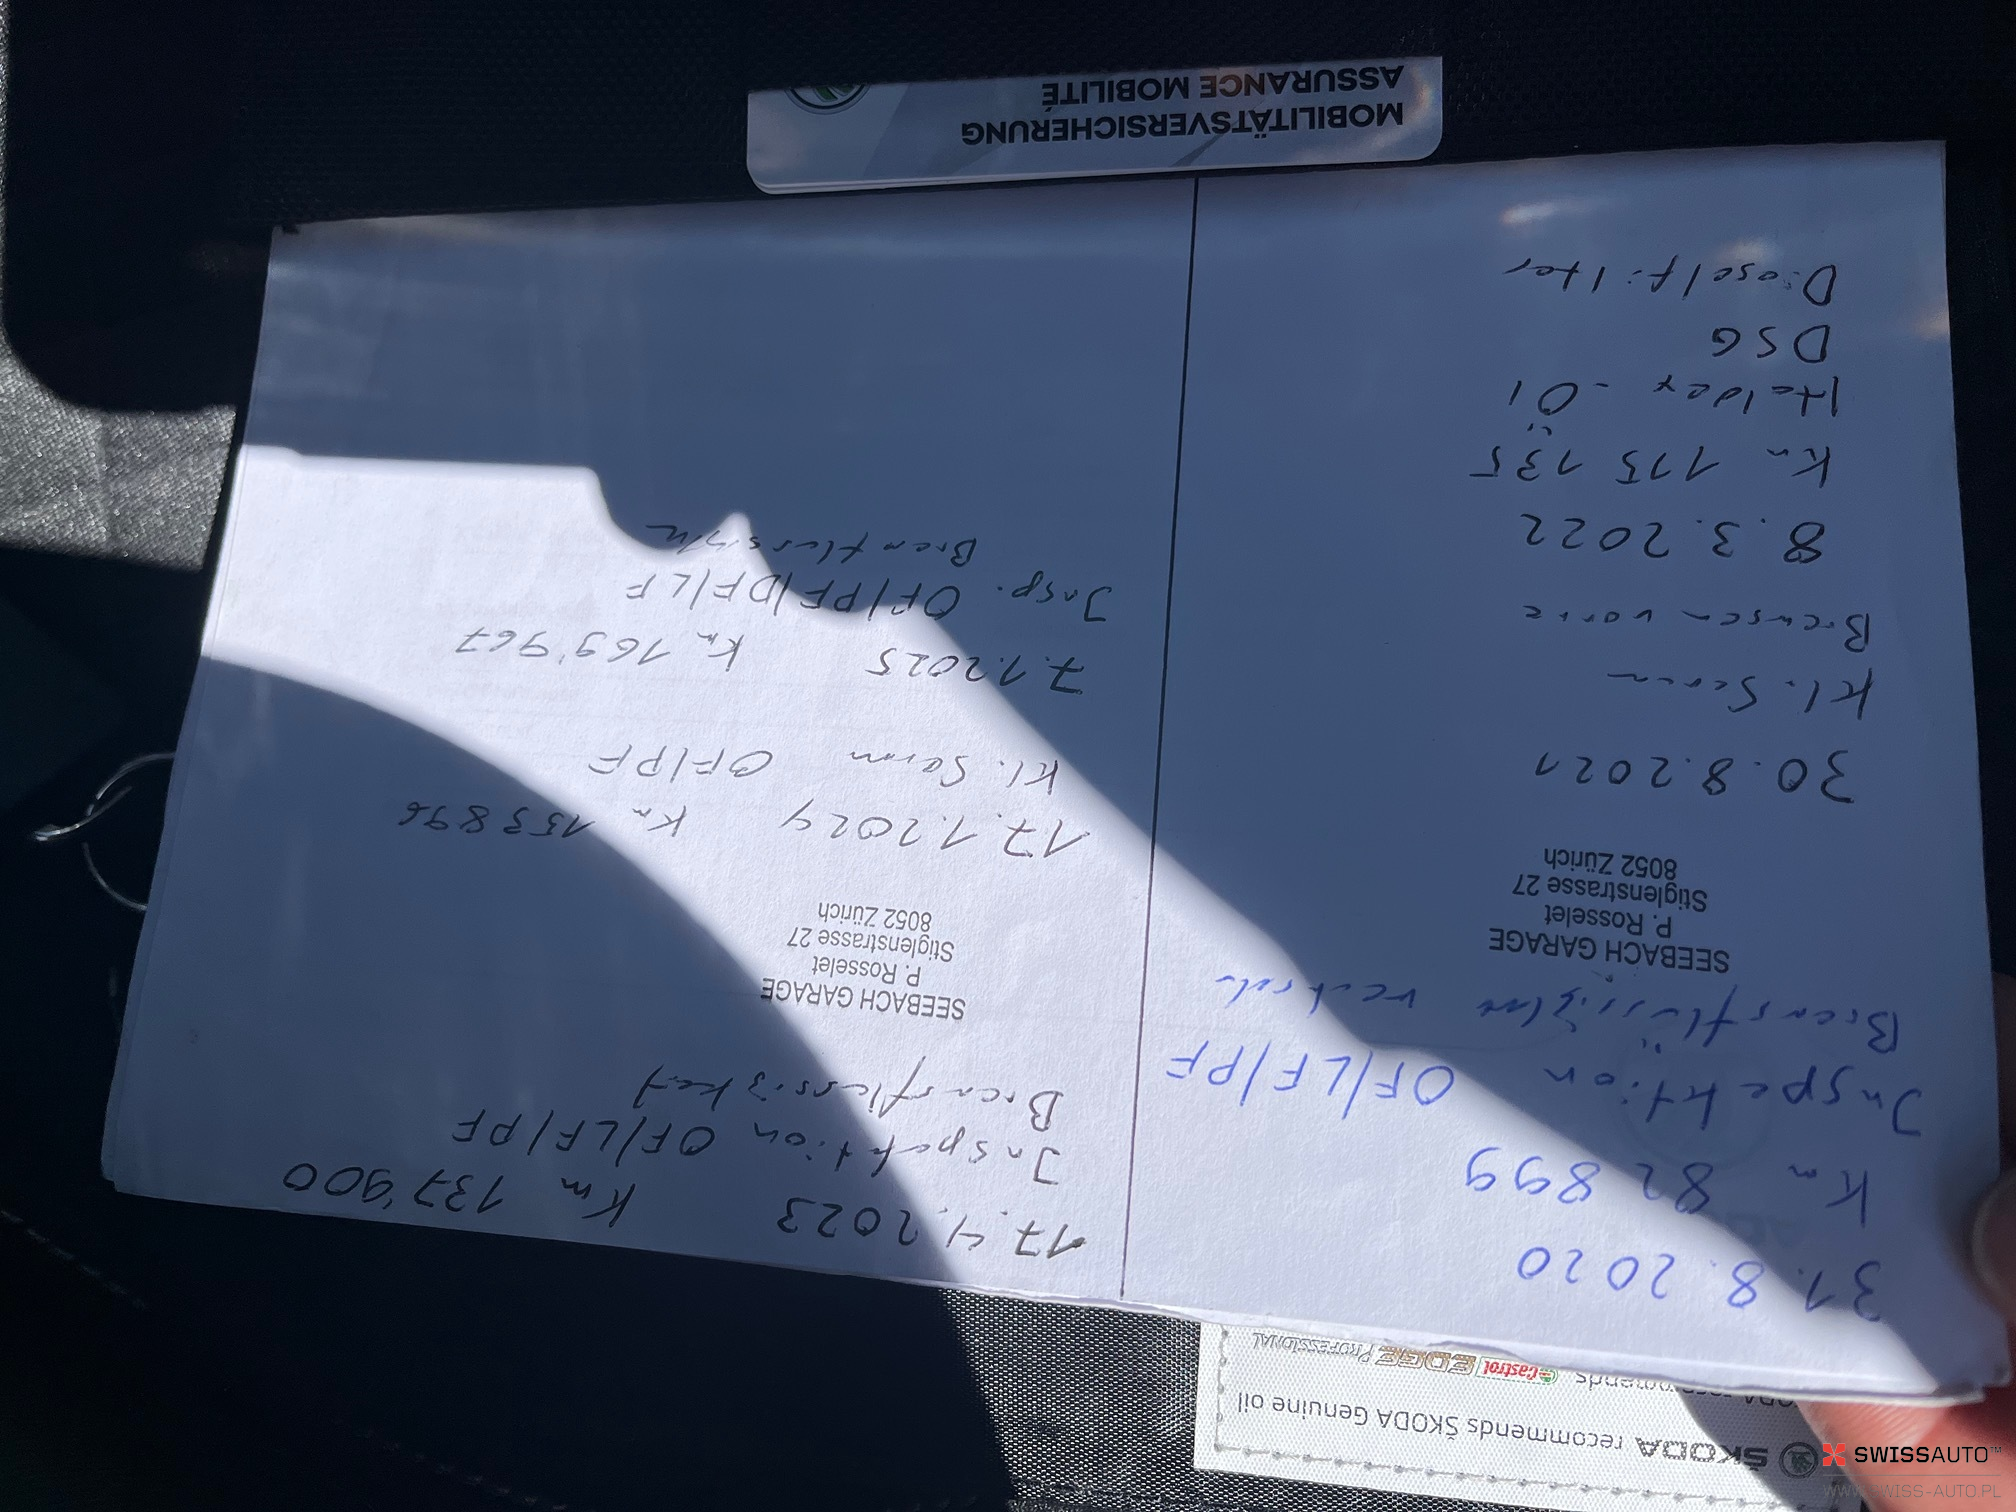 ŠKODA recommends ŠKODA Genuine oil
recommends Castrol EDGE PROFESSIONAL
31.8.2020
Km 82899
Inspektion OF/LF/PF
Bremsflüssigkeit
SEEBACH GARAGE
P. Rosselet
Stiglenstrasse 27
8052 Zürich
30.8.2021
Kl. Servic
Bremsen vorne
8.3.2022
Km 115 135
Haldex - Öl
DSG
Dieselfilter
17.4.2023 Km 137'900
Inspektion OF/LF/PF
Bremsflüssigkeit
SEEBACH GARAGE
P. Rosselet
Stiglenstrasse 27
8052 Zürich
17.1.2024 Km 153896
Kl. OF/PF
7.1.2025 Km 169'967
Insp. OF/PF/DF/LF
MOBILITÄTSVERSICHERUNG
ASSURANCE MOBILITÉ
SWISSAUTO™
WWW.SWISS-AUTO.PL